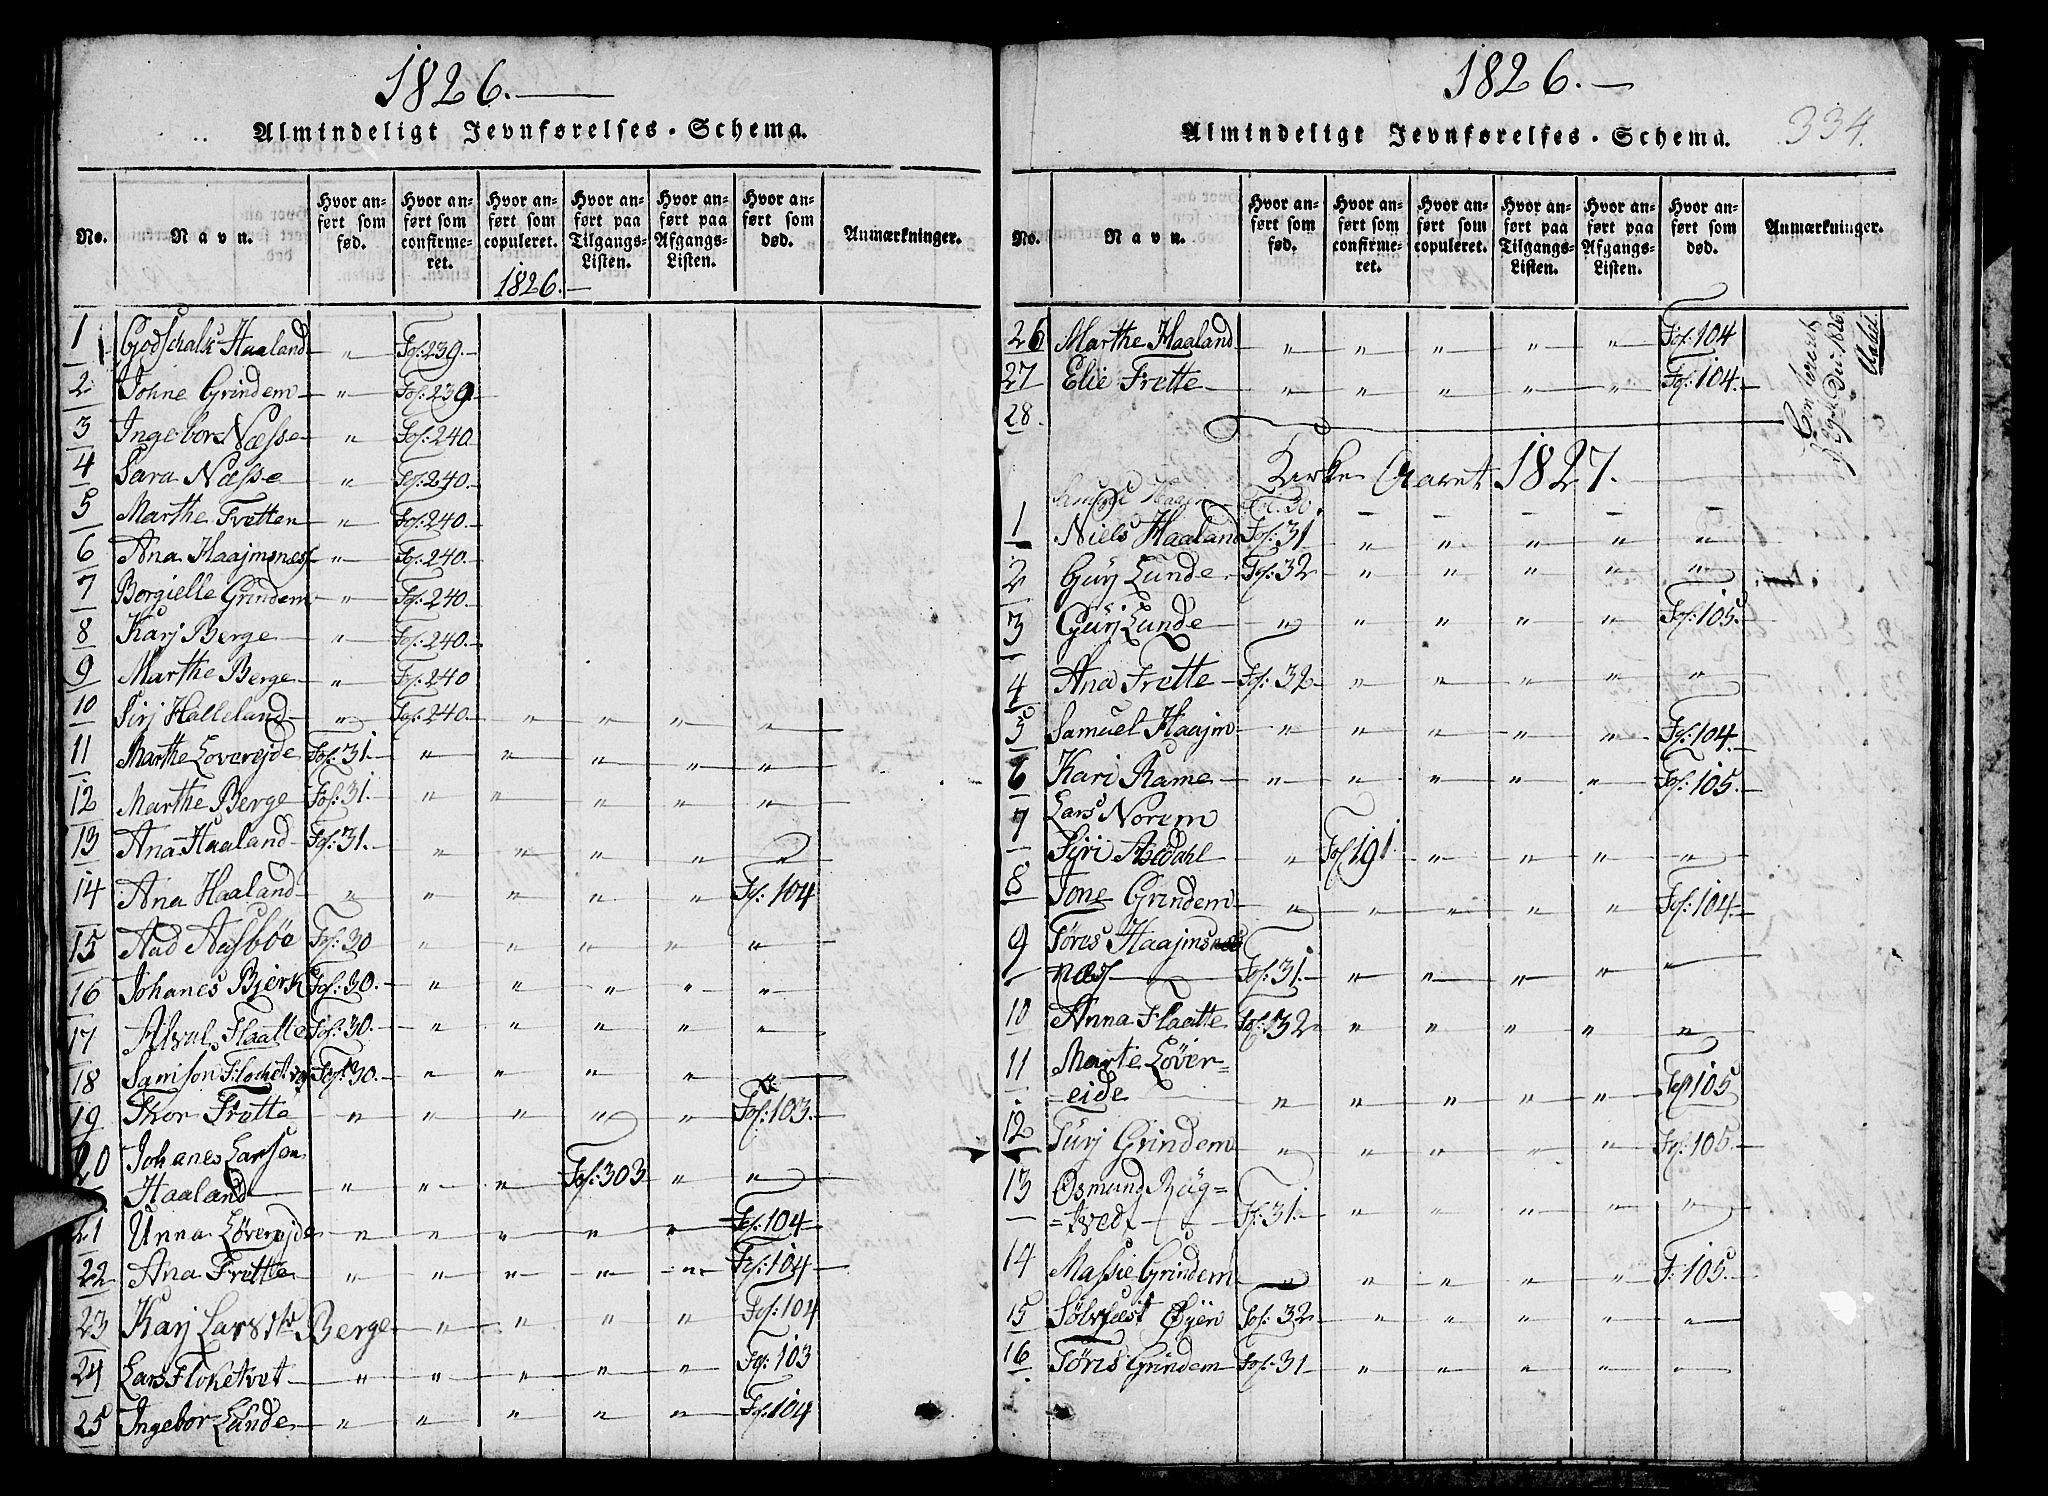 1826.
Almindeligt Jevnførelses-Schema.
No.
Navn.
Hvor an-
ført som
fød.
Hvor an-
ført som
confirme-
ret.
Hvor an-
ført som
copuleret.
1826.
Hvor an-
ført paa
Tilgangs-
Listen.
Hvor an-
ført paa
Afgangs-
Listen.
Hvor an-
ført som
død.
Anmærkninger.
1 Godschalk Haaland " Fol: 239.
2 Johne Grindem " Fol: 239
3 Ingebor Næsse " Fol: 240
4 Sara Næsse " Fol: 240.
5 Marthe Fretten " Fol: 240.
6 Ana Haajmsnæs " Fol: 240.
7 Borgielle Grindem " Fol: 240.
8 Karj Berge " Fol: 240.
9 Marthe Berge " Fol: 240
10 Sirj Halleland " Fol: 240. " " " "
11 Marthe Loverejde Fol: 31. " " " " "
12 Marthe Berge Fol: 31. " " " " "
13 Ana Haaland Fol: 31. " " " " "
14 Ana Haaland " " " " " Fol: 104
15 Aad Aasbøe Fol: 30 " " " " "
16 Johanes Bjerk Fol: 30. " " " " "
17 Flaatte Fol: 30. " " " " "
18 Samson Fol: 30. " " " " "
19 Thor Frette " " " " " Fol: 103.
20 Johanes Larsen
Haaland " " " Fol: 303 " "
21 Unna Løverejde " " " " " Fol: 104
22 Ana Frette " " " " " Fol: 104
23 Karj Berge " " " " Fol: 104
24 Lars Floketvet " " " " " Fol: 103
25 Ingebor Lunde " " " " " Fol: 104
1826.
334.
Almindeligt Jevnførelses-Schema.
No.
Navn.
Hvor an-
ført som
fød.
Hvor an-
ført som
confirme-
ret.
Hvor an-
ført som
copuleret.
Hvor an-
ført paa
Tilgangs-
Listen.
Hvor an-
ført paa
Afgangs-
Listen.
Hvor an-
ført som
død.
Anmærkninger.
26 Marthe Haaland " " " " " Fol: 104
27 Elie Frette " " " " " Fol: 104.
28.
Kirke Aaret 1827.
Fol. 30.
1 Niels Haaland Fol: 31 " " " " "
2 Gurj Lunde Fol: 32 " " " " "
3 Gurj Lunde " " " " " Fol: 105.
4 Ana Frette Fol: 32 " " " " "
5 Samuel Haajm " " " " " Fol: 104.
6 Kari Rame " " " " " Fol: 105.
7 Lars Norem
Siri " Fol 191 " " " "
8 Jone Grindem " " " " " Fol: 104.
9 Tøres Haajmsnæs
næs Fol: 31. " " " " "
10 Anna Flaatte Fol: 32 " " " " "
11 Marte Løver-
=eide " " " " " Fol 105
12 Turj Grindem " " " " " Fol: 105.
13 Osmund Rüg-
=tved. Fol: 31. " " " " "
14 Massie Grindem " " " " " F: 105.
15 Sølvfæst Øyen Fol: 32 " " " " "
16 Tøres Grindem Fol: 31 " " " " "